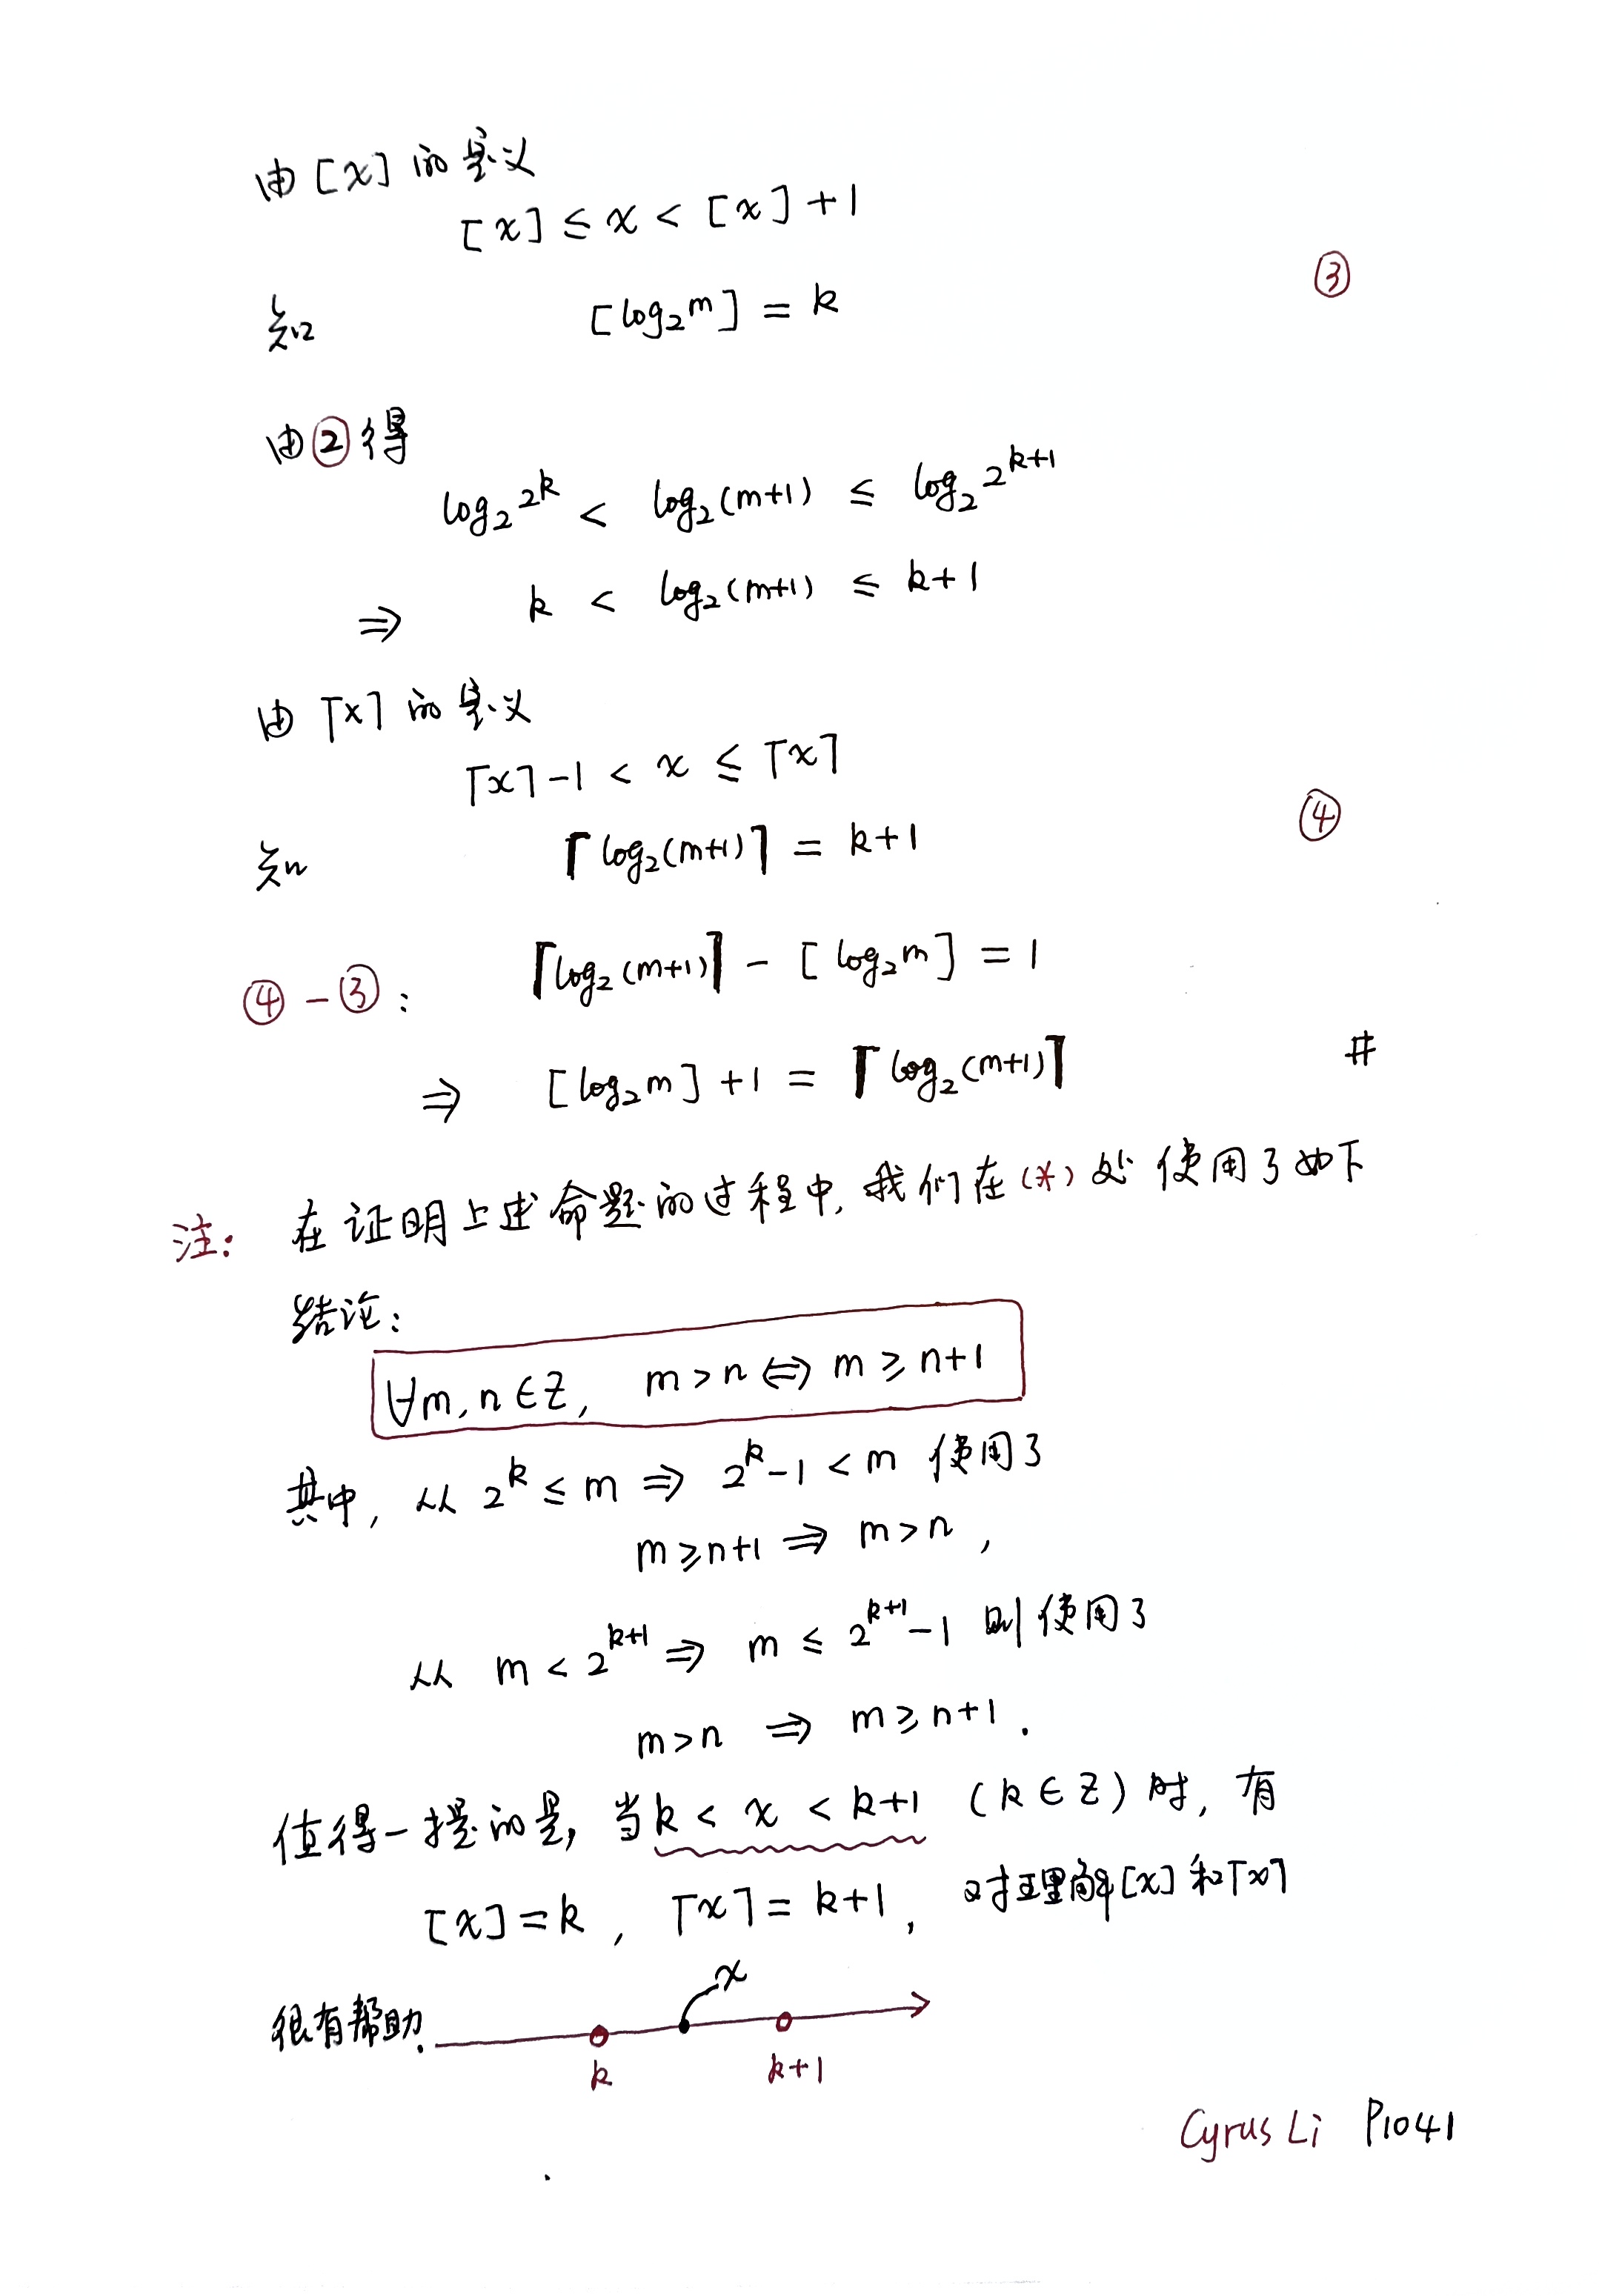 由[x]的定义
[x] ≤ x < [x]+1
③
知 [log₂m] = k
由②得
log₂2ᵏ < log₂(m+1) ≤ log₂2ᵏ⁺¹
⇒ k < log₂(m+1) ≤ k+1
由⌈x⌉的定义
⌈x⌉-1 < x ≤ ⌈x⌉
④
知 ⌈log₂(m+1)⌉ = k+1
④-③: ⌈log₂(m+1)⌉ - [log₂m] = 1
⇒ [log₂m]+1 = ⌈log₂(m+1)⌉ #
注: 在证明上述命题的过程中,我们在(*)处使用了如下
结论:
∀m,n∈Z, m>n ⇔ m≥n+1
其中,从 2ᵏ ≤ m ⇒ 2ᵏ-1 < m 使用了
m≥n+1 ⇒ m>n ,
从 m < 2ᵏ⁺¹ ⇒ m ≤ 2ᵏ⁺¹-1 则使用了
m>n ⇒ m≥n+1 .
值得一提的是,当k < x < k+1 (k∈Z)时,有
[x]=k , ⌈x⌉=k+1, 对理解[x]和⌈x⌉
很有帮助.
x
k k+1
Cyrus Li P1041